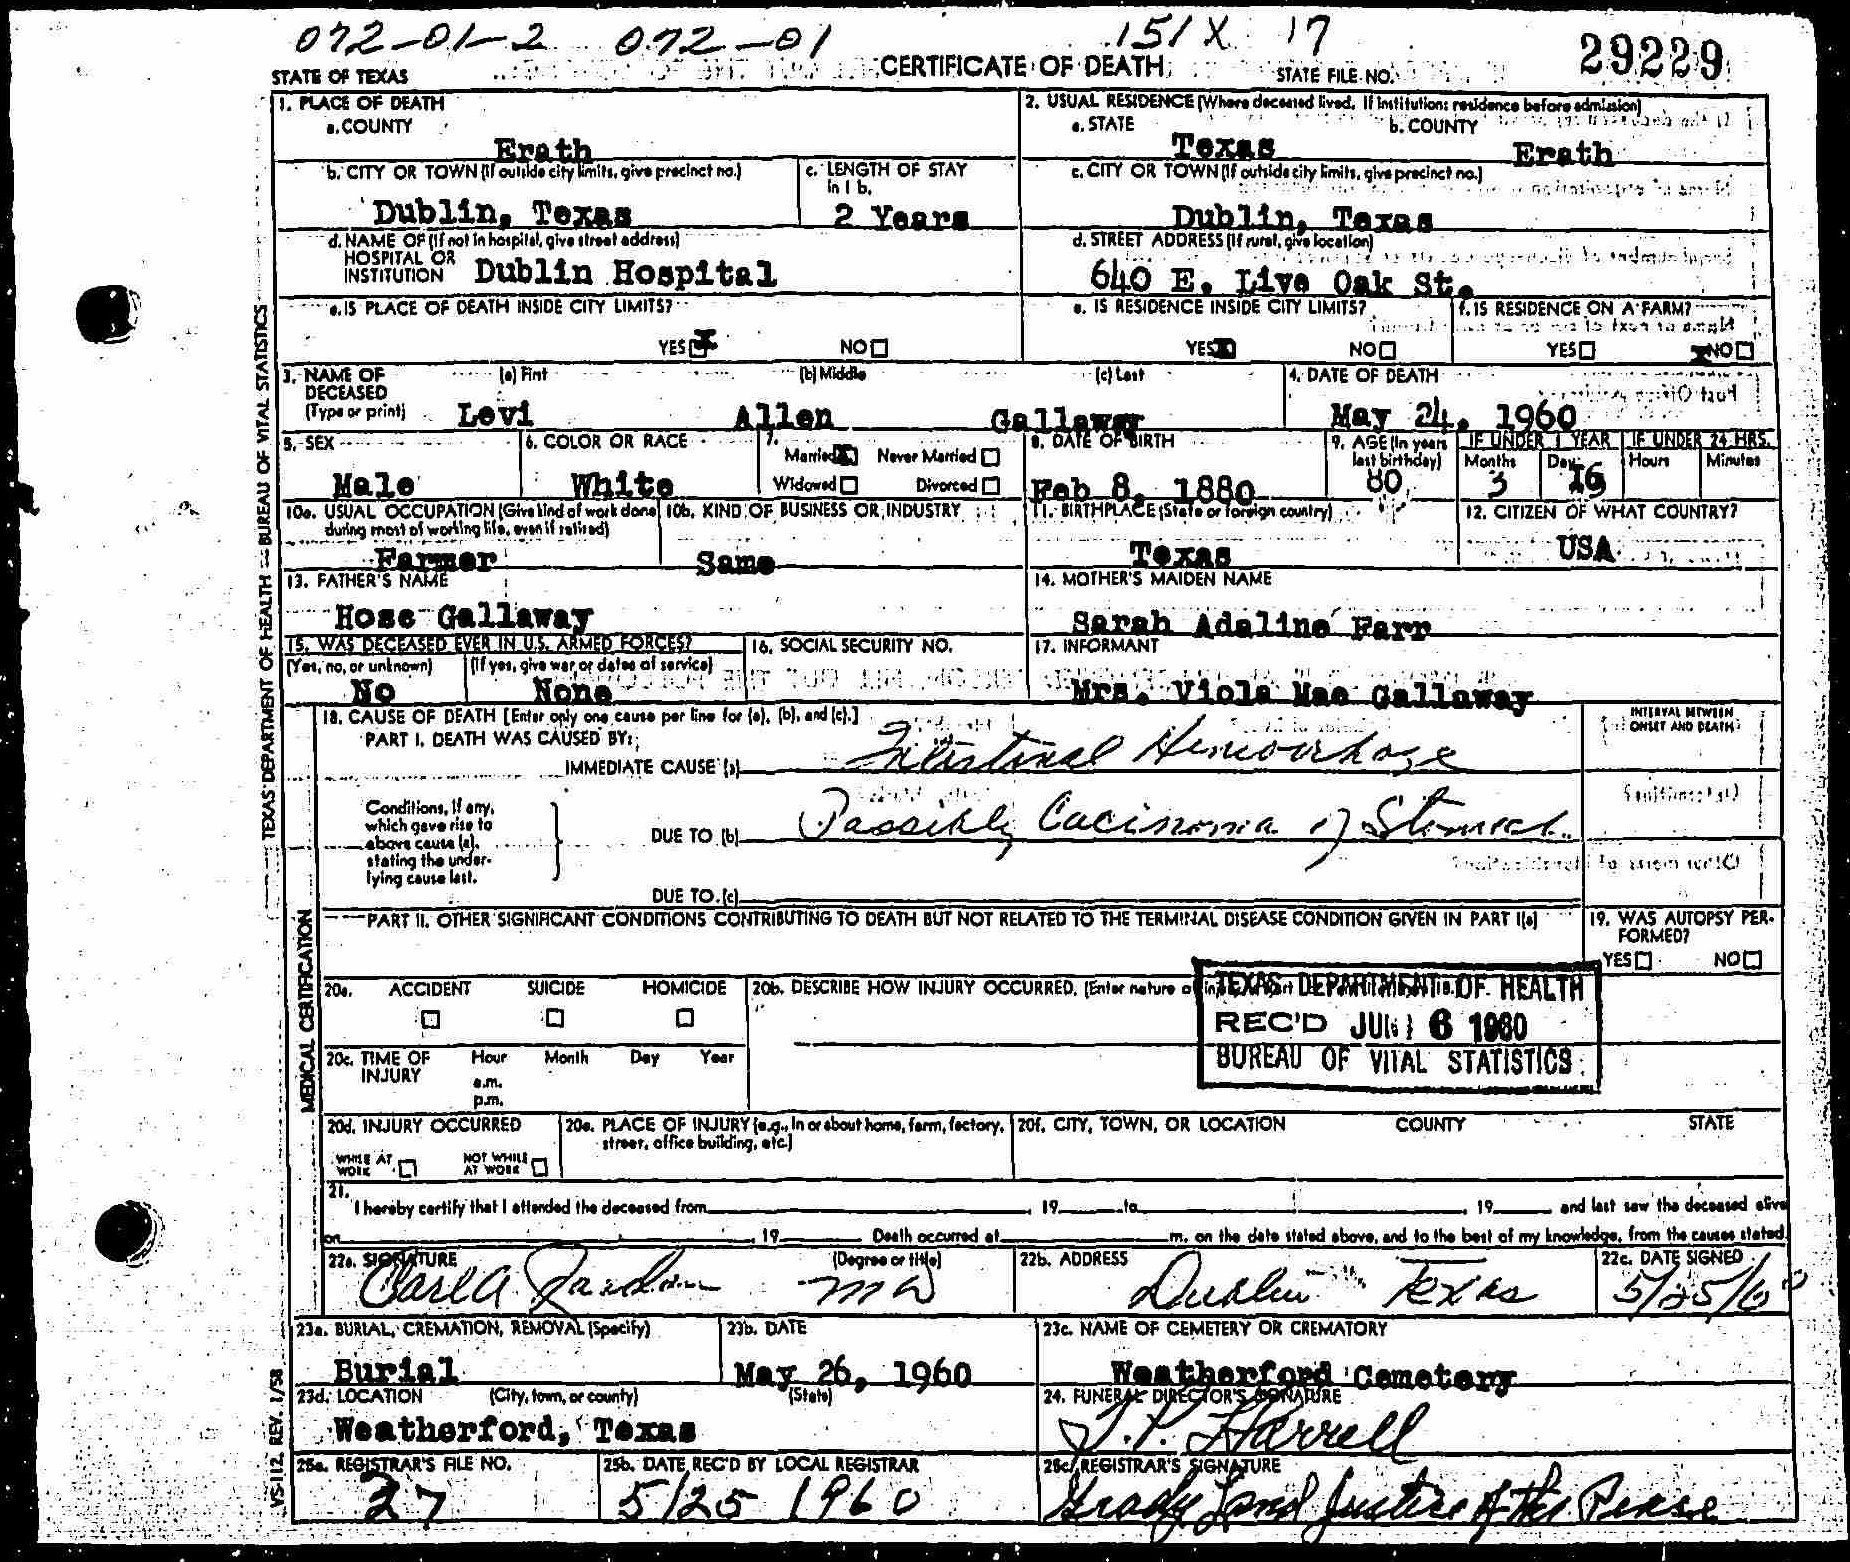 072-01-2 072-01 151X 17
STATE OF TEXAS CERTIFICATE OF DEATH STATE FILE NO. 29229
1. PLACE OF DEATH
a. COUNTY
Erath
2. USUAL RESIDENCE (Where deceased lived. If institution: residence before admission)
a. STATE b. COUNTY
Texas Erath
b. CITY OR TOWN (If outside city limits, give precinct no.)
Dublin, Texas
c. LENGTH OF STAY
in 1 b.
2 Years
c. CITY OR TOWN (If outside city limits, give precinct no.)
Dublin, Texas
d. NAME OF (If not in hospital, give street address)
HOSPITAL OR
INSTITUTION Dublin Hospital
d. STREET ADDRESS (If rural, give location)
640 E. Live Oak St.
e. IS PLACE OF DEATH INSIDE CITY LIMITS?
YES X NO
e. IS RESIDENCE INSIDE CITY LIMITS?
YES X NO
f. IS RESIDENCE ON A FARM?
YES X NO
3. NAME OF
DECEASED
(Type or print)
(a) First (b) Middle (c) Last
Levi Allen Gallaway
4. DATE OF DEATH
May 24, 1960
5. SEX
Male
6. COLOR OR RACE
White
7.
Married X Never Married
Widowed Divorced
8. DATE OF BIRTH
Feb 8, 1880
9. AGE (In years
last birthday)
80
IF UNDER 1 YEAR IF UNDER 24 HRS.
Months Days Hours Minutes
3 16
10a. USUAL OCCUPATION (Give kind of work done
during most of working life, even if retired)
Farmer
10b. KIND OF BUSINESS OR INDUSTRY
Same
11. BIRTHPLACE (State or foreign country)
Texas
12. CITIZEN OF WHAT COUNTRY?
USA
13. FATHER'S NAME
Hose Gallaway
14. MOTHER'S MAIDEN NAME
Sarah Adaline Farr
15. WAS DECEASED EVER IN U.S. ARMED FORCES?
(Yes, no, or unknown) (If yes, give war or dates of service)
No None
16. SOCIAL SECURITY NO.
17. INFORMANT
Mrs. Viola Mae Gallaway
18. CAUSE OF DEATH [Enter only one cause per line for (a), (b), and (c).]
PART I. DEATH WAS CAUSED BY:
IMMEDIATE CAUSE (a) Intestinal Hemorrhage
INTERVAL BETWEEN
ONSET AND DEATH
Conditions, if any,
which gave rise to
above cause (a),
stating the under-
lying cause last.
DUE TO (b) Possibly Cacinoma of Stomach
DUE TO (c)
PART II. OTHER SIGNIFICANT CONDITIONS CONTRIBUTING TO DEATH BUT NOT RELATED TO THE TERMINAL DISEASE CONDITION GIVEN IN PART I(a)
19. WAS AUTOPSY PER-
FORMED?
YES NO
20a. ACCIDENT SUICIDE HOMICIDE
20b. DESCRIBE HOW INJURY OCCURRED. (Enter nature of
TEXAS DEPARTMENT OF HEALTH
REC'D JUN 6 1960
BUREAU OF VITAL STATISTICS
20c. TIME OF
INJURY
Hour Month Day Year
a.m.
p.m.
20d. INJURY OCCURRED
WHILE AT
WORK
NOT WHILE
AT WORK
20e. PLACE OF INJURY (e.g., in or about home, farm, factory,
street, office building, etc.)
20f. CITY, TOWN, OR LOCATION COUNTY STATE
21.
I hereby certify that I attended the deceased from , 19 to , 19 and last saw the deceased alive
on , 19 Death occurred at m. on the date stated above, and to the best of my knowledge, from the causes stated.
22a. SIGNATURE (Degree or title)
Carl A MD
22b. ADDRESS
Dublin Texas
22c. DATE SIGNED
5/25/60
23a. BURIAL, CREMATION, REMOVAL (Specify)
Burial
23b. DATE
May 26, 1960
23c. NAME OF CEMETERY OR CREMATORY
Weatherford Cemetery
23d. LOCATION (City, town, or county) (State)
Weatherford, Texas
24. FUNERAL DIRECTOR'S SIGNATURE
T. P. Harrell
25a. REGISTRAR'S FILE NO.
27
25b. DATE REC'D BY LOCAL REGISTRAR
5/25 1960
25c. REGISTRAR'S SIGNATURE
Grady Land Justice of the Peace
TEXAS DEPARTMENT OF HEALTH — BUREAU OF VITAL STATISTICS
MEDICAL CERTIFICATION
VS-112, REV. 1/58